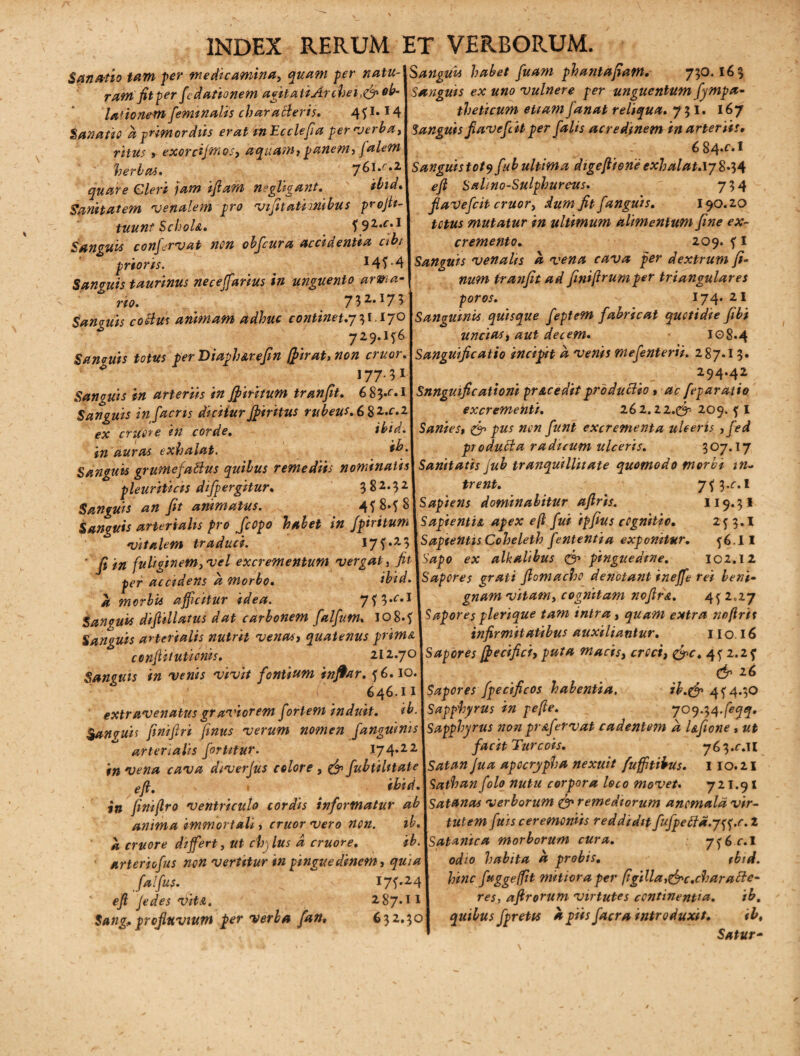 INDEX RERUM ET VERBORUM.
Sanatio tam per medicamina, quam per natu-
ram fit per sedationem agitati Archei, & ob-
lationem seminalis characteris. 451.14
Sanatio à primordiis erat in Ecclesia per verba,
ritus, exorcismos, aquam, panem, salem
herbas. 761.c.2
quare Cleri jam istam negligant. ibid.
Sanitatem venalem pro visitationibus prosti-
tuunt Scholæ. 592.c.1
Sanguis conservat non obscura accidentia cibi
prioris. 145.4
Sanguis taurinus necessarius in unguento arma-
rio. 732.173
Sanguis coctus animam adhuc continet. 731.170
729.156
Sanguis totus per Diaphæresin spirat, non cruor.
177.31
Sanguis in arteriis in spiritum transit. 683.c.1
Sanguis in sacris dicitur spiritus rubeus. 682.c.2
ex cruore in corde. ibid.
in auras exhalat. ib.
Sanguis grumefactus quibus remediis nominatis
pleuriticis dispergitur. 382.32
Sanguis an sit animatus. 458.58
Sanguis arterialis pro scopo habet in spiritum
vitalem traduci. 175.23
si in fuliginem, vel excrementum vergat, fit
per accidens à morbo. ibid.
à morbis afficitur idea. 753.c.1
Sanguis distillatus dat carbonem salsum. 108.5
Sanguis arterialis nutrit venas, quatenus primæ
constitutionis. 212.70
Sanguis in venis vivit fontium instar. 56.10.
646.11
extravenatus graviorem sortem induit. ib.
Sanguis sinistri sinus verum nomen sanguinis
arterialis sortitur. 174.22
in vena cava diversus colore, & subtilitate
est. ibid.
in sinistro ventriculo cordis informatur ab
anima immortali, cruor vero non. ib.
à cruore differt, ut chylus à cruore. ib.
arteriosus non vertitur in pinguedinem, quia
salsus. 175.24
est sedes vitæ. 287.11
Sang. profluvium per verba san. 632.30
Sanguis habet suam phantasiam. 730.163
Sanguis ex uno vulnere per unguentum sympa-
theticum etiam sanat reliqua. 731. 167
Sanguis flavescit per salis acredinem in arteriis.
684.c.1
Sanguis totꝰ sub ultima digestione exhalat. 178.34
est Salino-Sulphureus. 734
flavescit cruor, dum fit sanguis. 190.20
totus mutatur in ultimum alimentum sine ex-
cremento. 209. 51
Sanguis venalis à vena cava per dextrum si-
num transit ad sinistrum per triangulares
poros. 174. 21
Sanguinis quisque septem fabricat quotidie sibi
uncias, aut decem. 108.4
Sanguificatio incipit à venis mesenterii. 287.13.
294.42
Snnguificationi præcedit productio, ac separatio
excrementi. 262.22.& 209. 51
Sanies, & pus non sunt excrementa ulceris, sed
producta radicum ulceris. 307.17
Sanitatis sub tranquillitate quomodo morbi in-
trent. 753.c.1
Sapiens dominabitur astris. 119.31
Sapientiæ apex est sui ipsius cognitio. 253.1
Sapientis Coheleth sententia exponitur. 56.11
Sapo ex alkalibus & pinguedine. 102.12
Sapores grati stomacho denotant inesse rei beni-
gnam vitam, cognitam nostræ. 452.27
Sapores plerique tam intra, quam extra nostris
infirmitatibus auxiliantur. 110.16
Sapores specifici, puta macis, croci, &c. 452.25
& 26
Sapores specificos habentia. ib.& 454.30
Sapphyrus in peste. 709.34.seqq.
Sapphyrus non præservat cadentem à læsione, ut
facit Turcois. 763.c.II
Satan sua apocrypha nexuit suffitibus. 110.21
Sathan solo nutu corpora loco movet. 721.91
Satanas verborum & remediorum anomalâ vir-
tutem suis ceremoniis reddidit suspectâ. 755.c.2
Satanica morborum cura. 756 c.1
odio habita à probis. ibid.
hinc suggessit mitiora per sigilla, &c. characte-
res, astrorum virtutes continentia. ib.
quibus spretis à piis sacra introduxit. ib.
Satur-